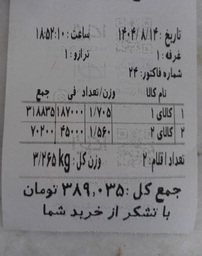 تاریخ : ۱۴۰۴/۸/۱۴ ساعت : ۱۸:۵۲:۱۰
غرفه : ۱ ترازو : ۱
شماره فاکتور: ۲۴
نام کالا وزن/تعداد فی جمع
۱ کالای ۱ ۱/۷۰۵ ۱۸۷۰۰۰ ۳۱۸۸۳۵
۲ کالای ۲ ۱/۵۶۰ ۴۵۰۰۰ ۷۰۲۰۰
تعداد اقلام: ۲ وزن کل : ۳/۲۶۵ kg
جمع کل : ۳۸۹,۰۳۵ تومان
با تشکر از خرید شما